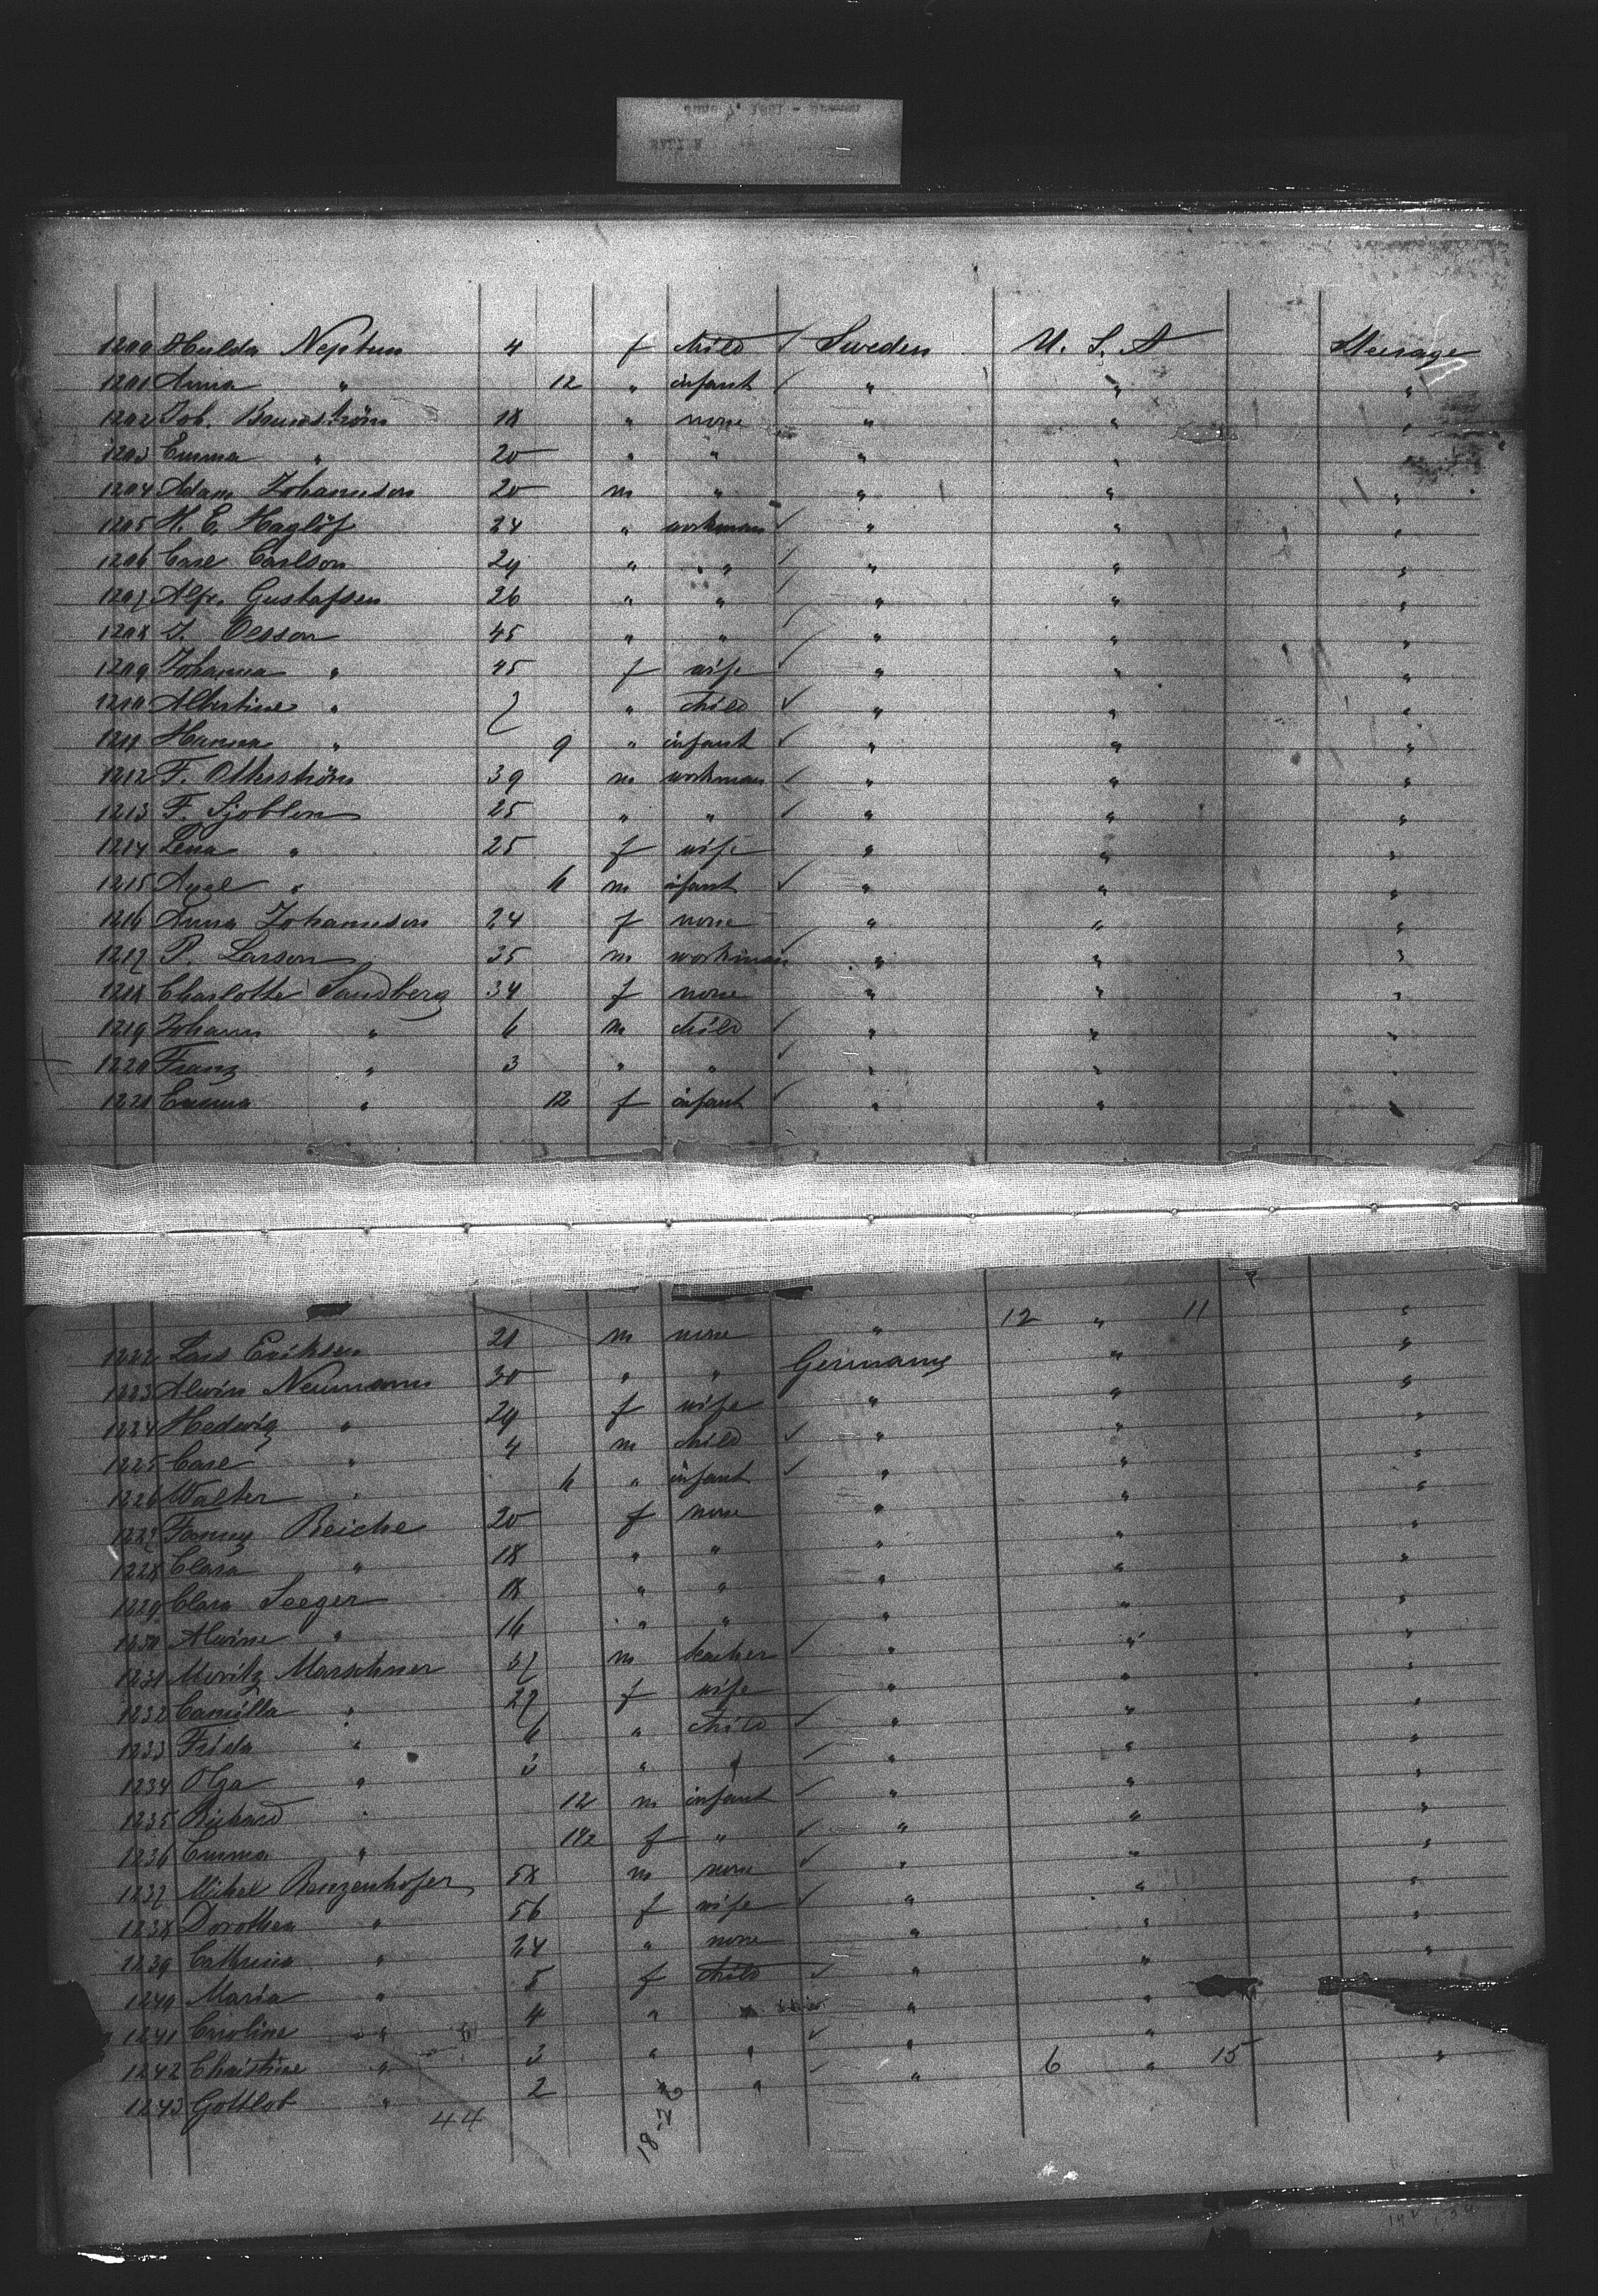 1200 Hulda Neptun 4 f child ✓ Sweden U. S. A Steerage
1201 Anna " 12 " infant ✓ " " "
1202 Joh. Brunström 18 " none " " "
1203 Emma " 20 " " " " "
1204 Adam Johannson 20 m " " " "
1205 H. E. Haglöf 24 " workman ✓ " " "
1206 Carl Carlson 29 " " ✓ " " "
1207 Alfr. Gustafsen 26 " " ✓ " " "
1208 J. Olsson 45 " " ✓ " " "
1209 Johanna " 45 f wife ✓ " " "
1210 Albertine " 7 " child ✓ " " "
1211 Hanna " 9 " infant ✓ " " "
1212 F. 39 m workman ✓ " " "
1213 F. Sjöblom 25 " " ✓ " " "
1214 Lena " 25 f wife " " "
1215 Axel " 6 m infant ✓ " " "
1216 Anna Johannson 24 f none " " "
1217 P. Larson 35 m workman ✓ " " "
1218 Charlotte Sandberg 34 f none " " "
1219 Johann " 6 m child ✓ " " "
1220 Franz " 3 " " ✓ " " "
1221 Emma " 12 f infant ✓ " " "
1222 Lars Eriksen 21 m none " 12 " 11 "
1223 Alwin Neumann 30 " " Germany " "
1224 Hedwig " 29 f wife " " "
1225 Carl " 4 m child ✓ " " "
1226 Walter " 6 " infant ✓ " " "
1227 Fanny Reiche 20 f none " " "
1228 Clara " 18 " " " " "
1229 Clara Seeger 18 " " " " "
1230 Alwine " 16 " " " " "
1231 Moritz Marschner 37 m teacher ✓ " " "
1232 Camilla " 27 f wife " " "
1233 Frida " 6 " child ✓ " " "
1234 Olga " 3 " " ✓ " " "
1235 Richard " 12 m infant ✓ " " "
1236 Emma " 1/2 f " ✓ " " "
1237 Mihal Renzenhofer 58 m none ✓ " " "
1238 Dorothea " 56 f wife ✓ " " "
1239 Cathrina " 24 " none " " "
1240 Maria " 5 f child ✓ " " "
1241 Caroline " 4 " " " " "
1242 Christine " 3 " " ✓ " " "
1243 Gottlob " 2 " " ✓ " 6 " 15 "
44
18-26